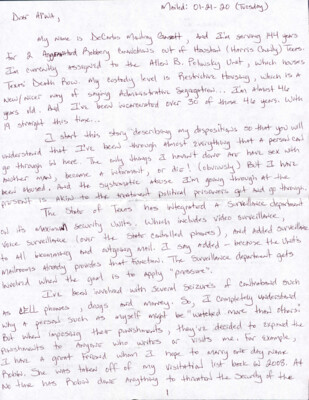 Mailed: 01-21-20 (Tuesday)
Dear APWA,
My name is DeCarlos Manley and I'm serving 144 years
for 2 Aggravated Robbery convictions out of Houston (Harris County) Texas.
I'm currently assigned to the Allen B. Polunsky Unit, which houses
Texas' Death Row. My custody level is Restrictive Housing, which is a
new/nicer way of saying Administrative Segregation... I'm almost 46
years old. And I've been incarcerated over 30 of those 46 years. With
19 straight this time...
I start this story describing my disposition so that you will
understand that I've been through almost everything that a person can
go through in here. The only things I haven't done are have sex with
another man, become a informant, or die! (obviously) But I have
been abused. And the systematic abuse I'm going through at the
present is akin to the treatment political prisoners get and go through.
The State of Texas has integrated a Surveillance department
in its maximum security Units. Which includes video surveillance,
voice surveillance (over the State controlled phones), and added surveillance
to all incoming and outgoing mail. I say added - because the Unit's
mailrooms already provides that function. The Surveillance department gets
involved when the goal is to apply "pressure".
I've been involved with several seizures of contraband such
as cell phones, drugs and money. So, I completely understand
why a person such as myself might be "watched more than others."
But when imposing their punishments, they've decided to expand the
punishments to anyone who writes or visits me. For example,
I have a great friend whom I hope to marry some day name
She was taken off of my visitation list back in 2008. At
no time has done anything to threaten the security of the
1